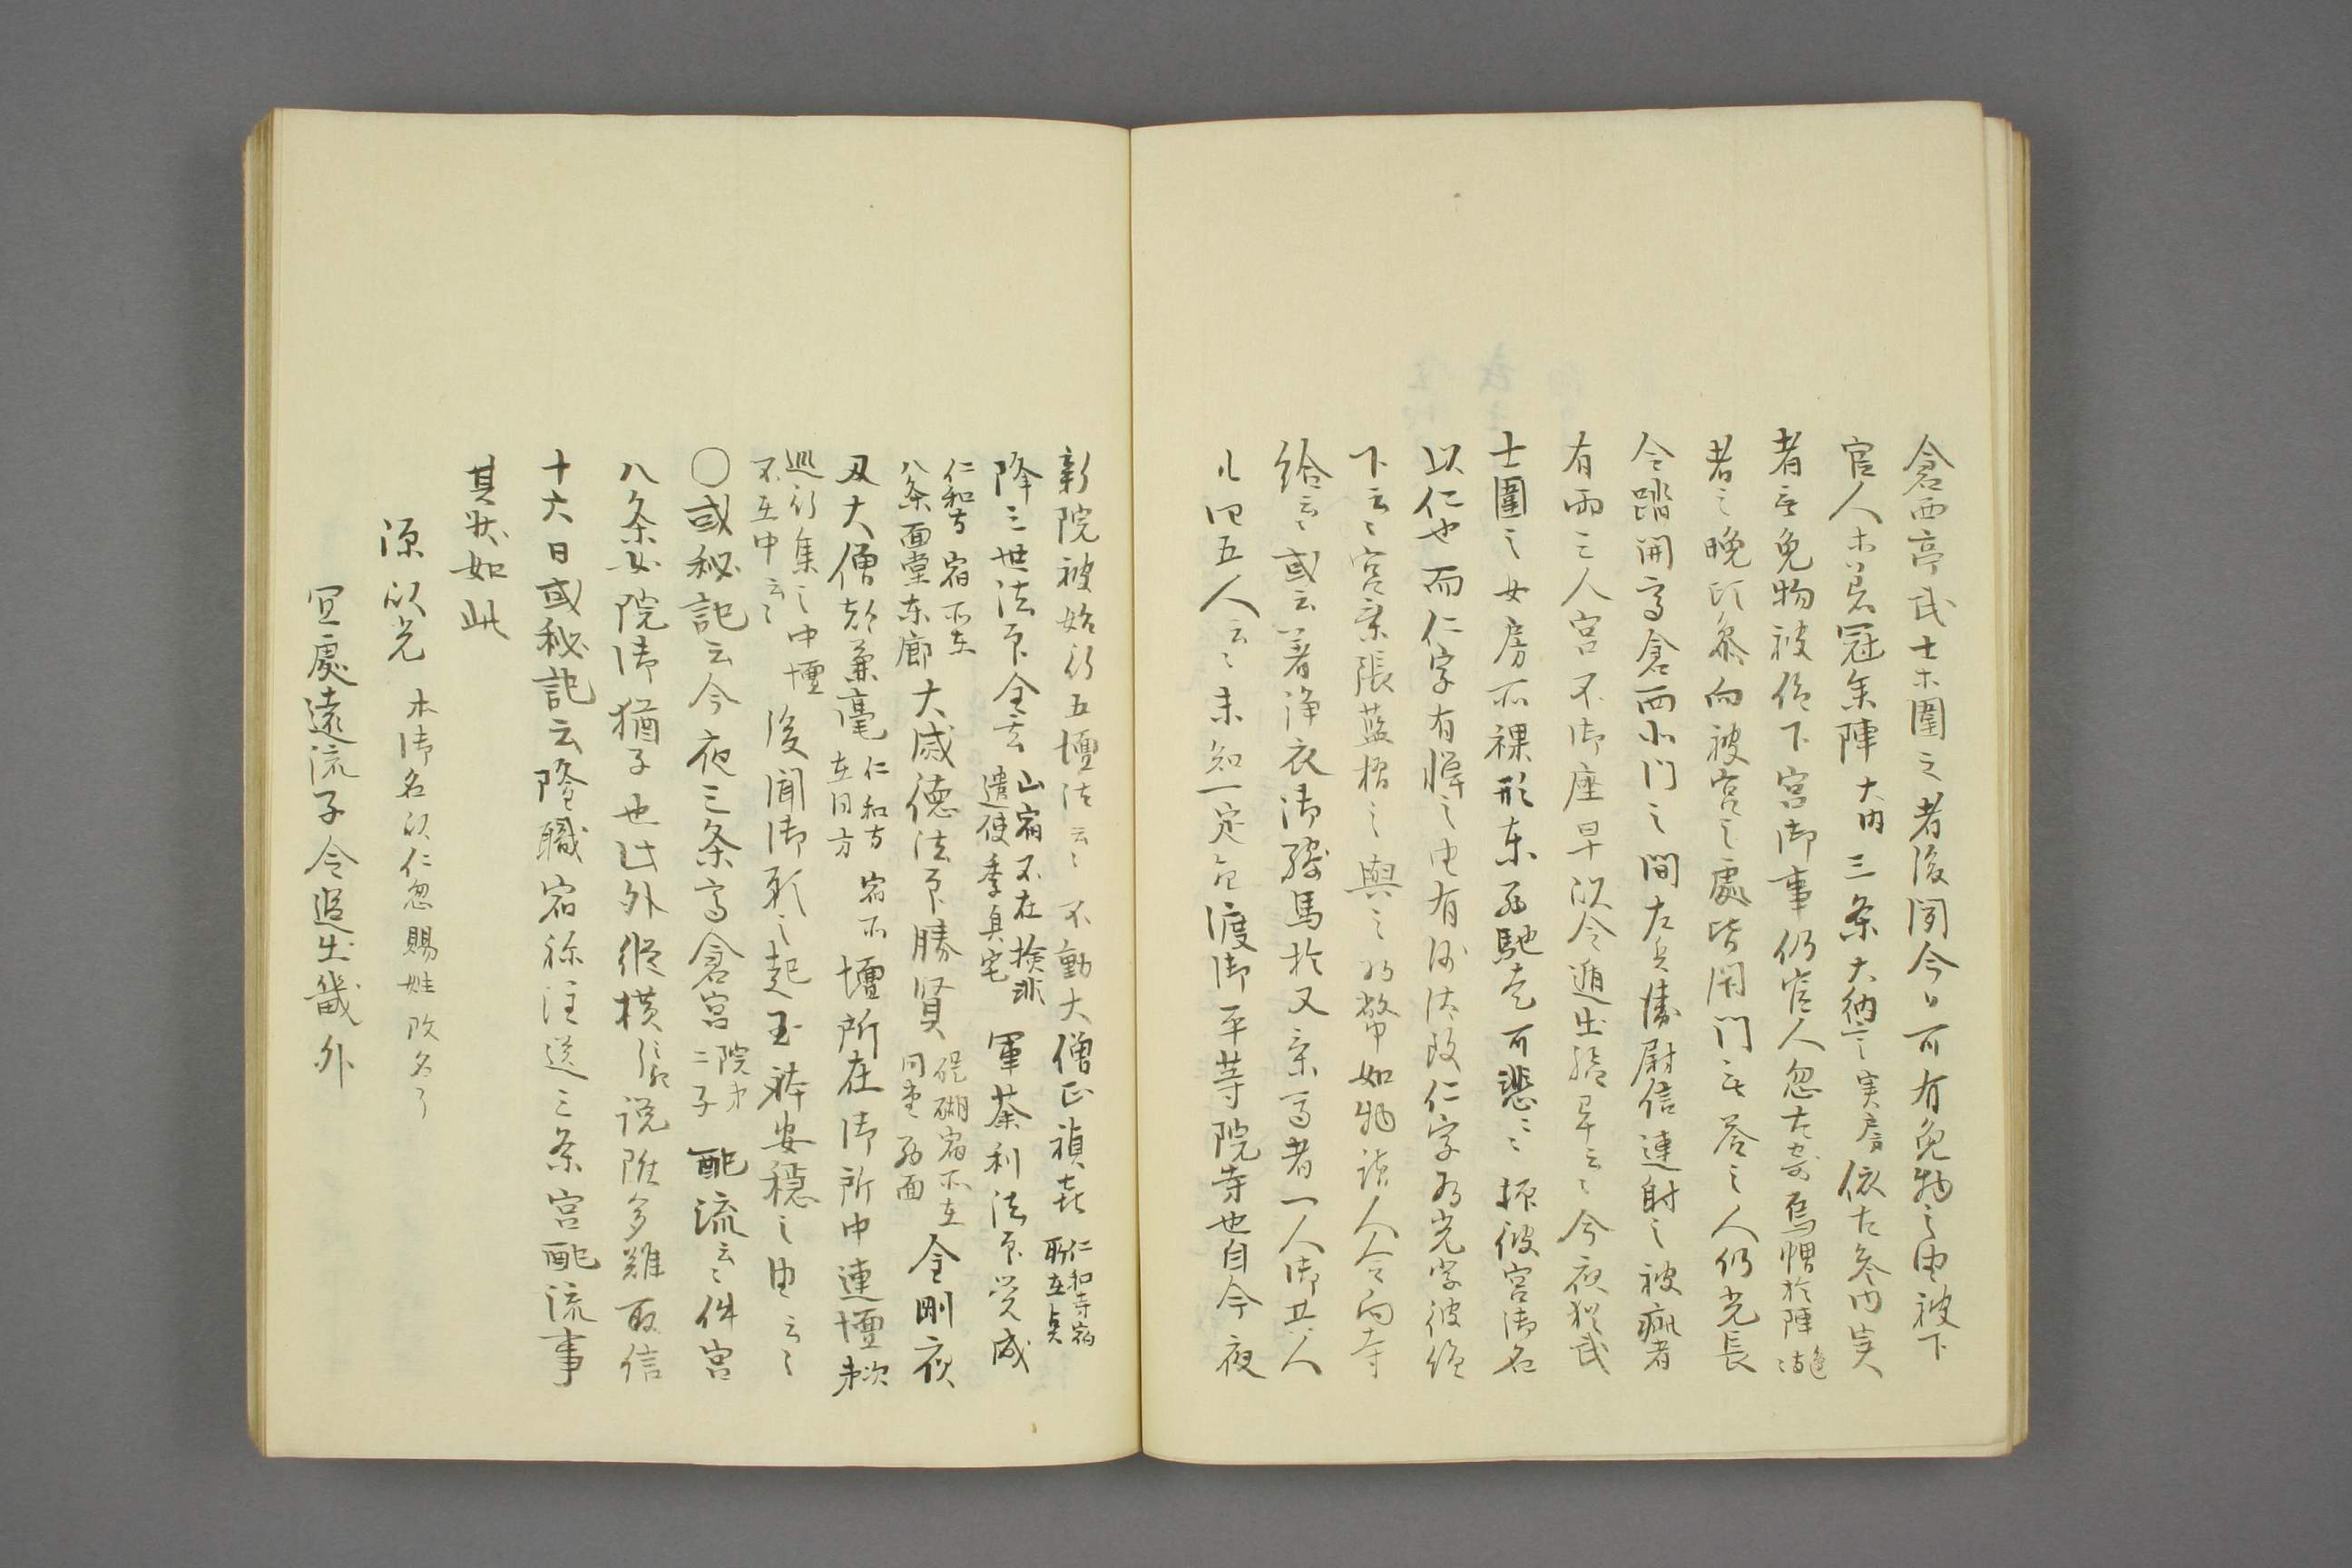 倉西亭武士未圍之者後聞今日可有免物之由被下
官人未著冠糸陣大内三条大納言実房依大参内実
者無免物被仰下宮御事仍官人忽 烏帽於陣
者之晩頃参向被宮之處皆閇門無答之人仍光長
令踏開高倉面小門之間左兵衛尉信連射之被疵者
有両三人宮不御座早以令遁出給畢云々今夜猶武
士圍之女房 裸形東西馳走可悲々々 彼宮御名
以仁也而仁字有憚之由有 改仁字為光字被仰
下云々宮乗張藍摺之輿之為幣如物詣人令向寺
給云々或云著浄衣御騎馬於又乗馬者一人御共人
僅四五人云々未知一定 渡御平等院寺也自今夜
新院被始行五壇法云々不動大僧正禎喜仁和寺宿
降三世法印全玄山宿不在 遣使季貞宅 軍荼利法印覚成
仁和寺宿所在八条面堂東廊大威徳法印勝賢醍醐宿所在同堂西面金剛夜
叉大僧都兼毫仁和寺宿所在同方壇所在御所中連壇歟
巡行集之中壇不在中云々後聞御祈之起玉躰安穏之由云々
○或秘記云今夜三条高倉宮院第二子配流云々件宮
八条女院御猶子也此外縦横 説雖多難取信
十六日或秘記云隆職宿祢注送三条宮配流事
其状如此
源以光 本御名以仁忽賜姓改名了
宜處遠流子令追出畿外